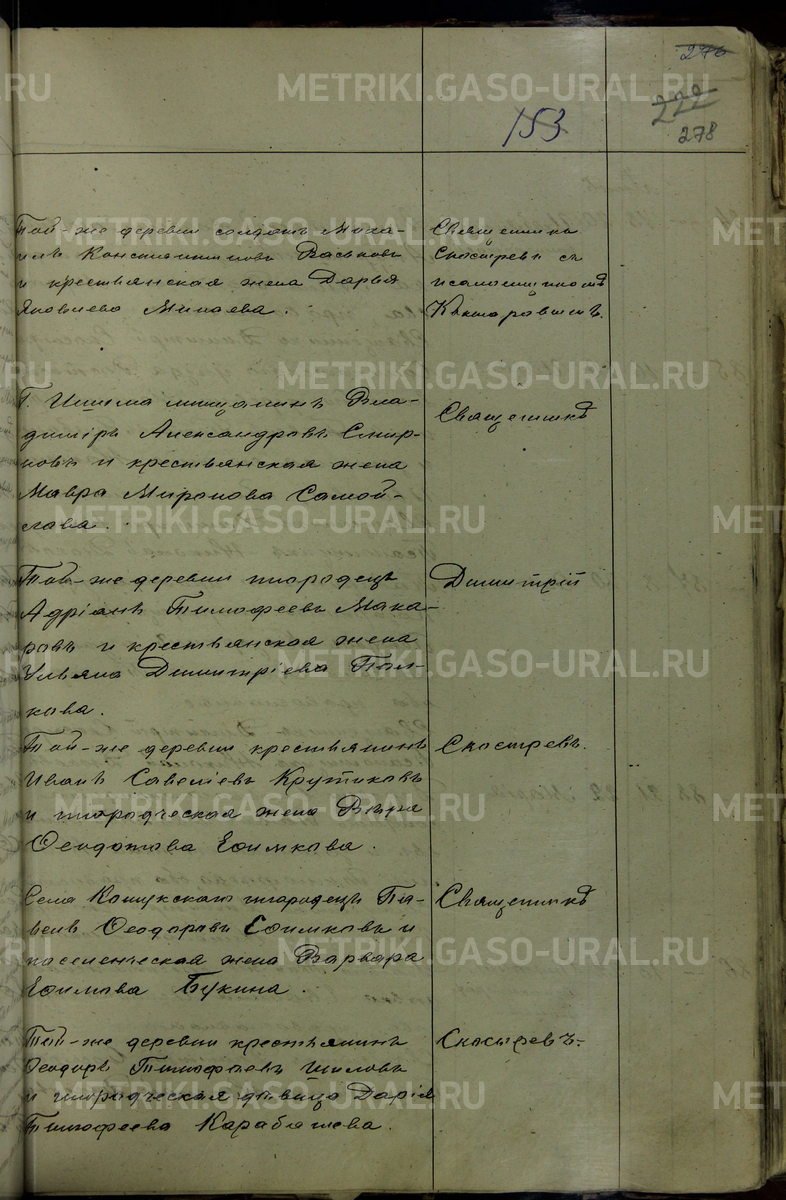 276
153
222
278
Той-же деревни солдатъ Миха-
илъ Константиновъ Васьковъ
и крестьянская жена Дарья
Яковлева Минаева.
Священникъ
Скосыревъ съ
псаломщикомъ
Г. Ишима мѣщанинъ Вла-
димiръ Александровъ Смир-
новъ и крестьянская жена
Мавра Миронова Самой-
лова.
Священникъ
Той-же деревни инородецъ
Адрiанъ Тимофеевъ Мака-
ровъ и крестьянская жена
Ульяна Димитрiева Пол-
кова.
Димитрiй
Той-же деревни крестьянинъ
Иванъ Савелiевъ Крутиковъ
и инородческая жена Вѣра
Ѳеодотова Ефимкова.
Скосыревъ.
Села Кошукскаго инородецъ Па-
велъ Ѳеодоровъ Ефимковъ и
поселенческая жена Варвара
Ефимова Букина.
Священникъ
Той-же деревни крестьянинъ
Ѳеодоръ Тимофѣевъ Шиловъ
и инородческая дѣвица Дарiя
Тимофеева Карабашева.
Скосыревъ.
METRIKI.GASO-URAL.RU